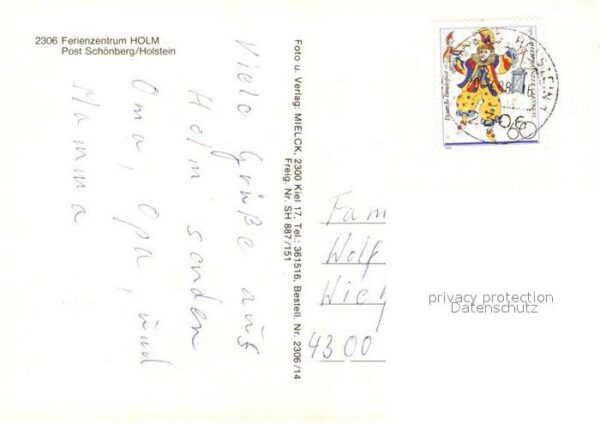 2306 Ferienzentrum HOLM
Post Schönberg/Holstein
Viele Grüße aus
Holm senden
Oma, Opa, und
Mamma
Foto u. Verlag: MIELCK, 2300 Kiel 17, Tel.: 361516, Bestell. Nr. 2306/14
Freig. Nr. SH 887/151
Fam
Wolf
4300
privacy protection
Datenschutz
60